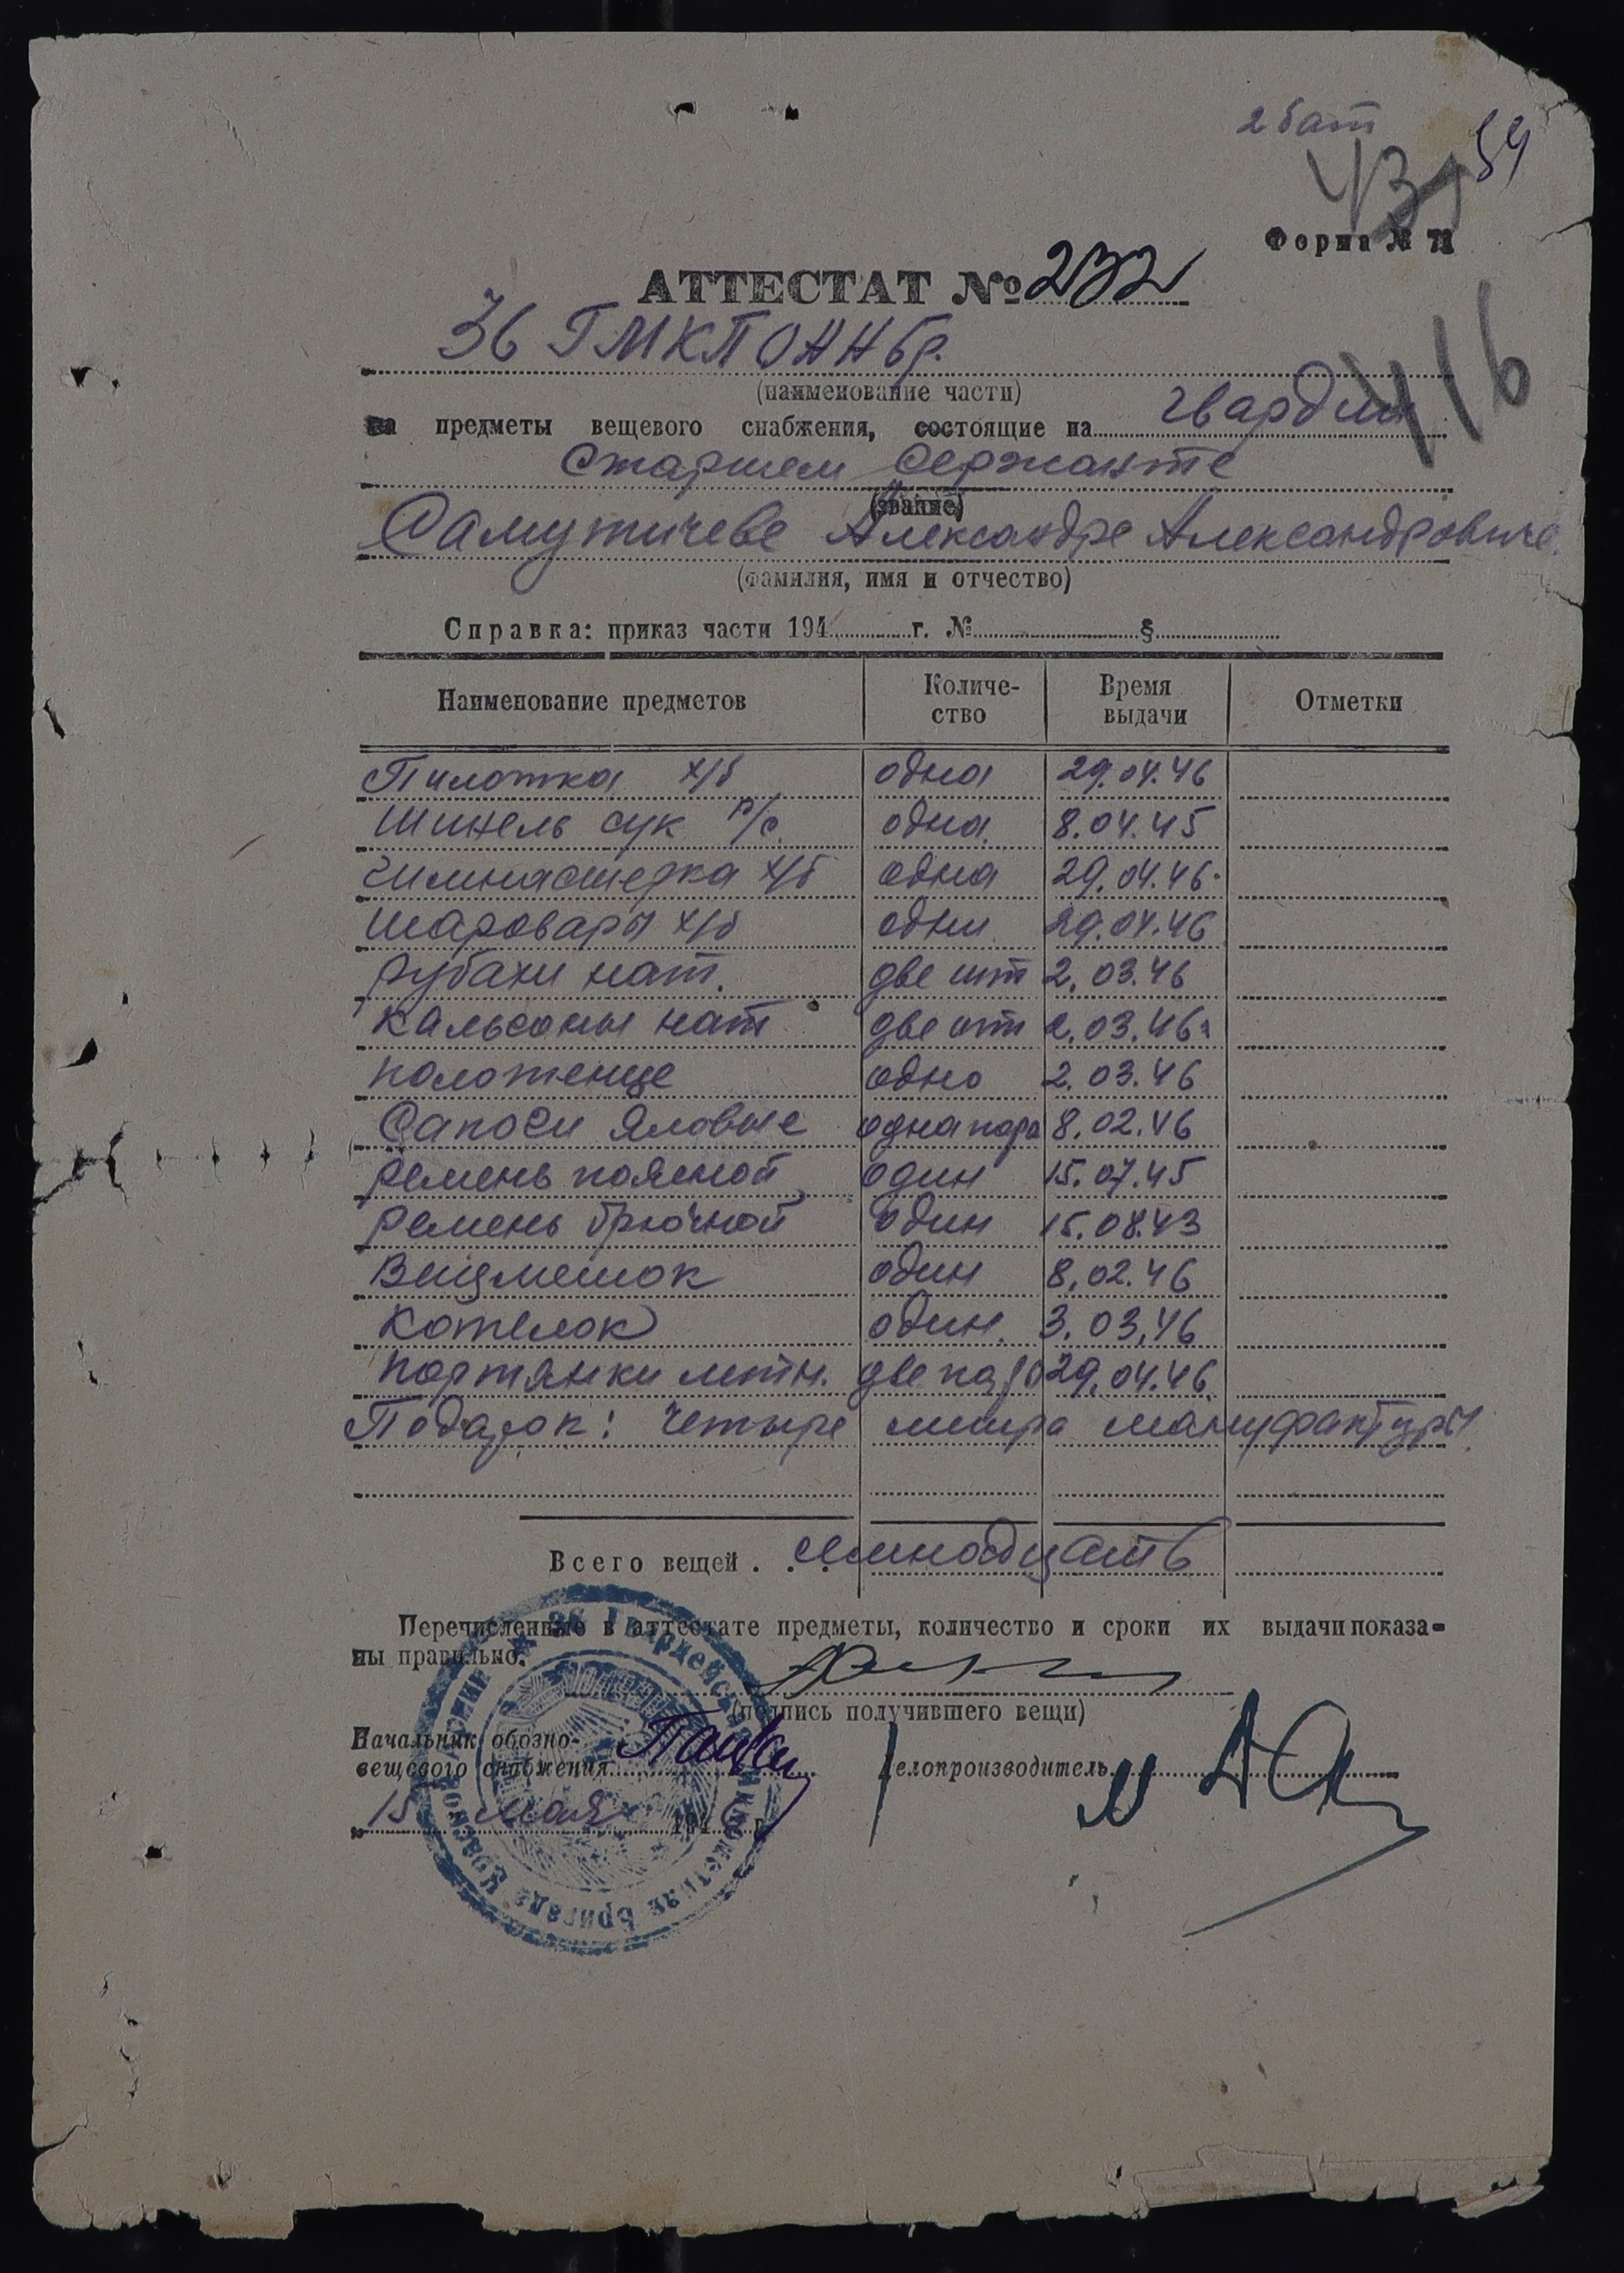 2 бат
59
Форма № 71
АТТЕСТАТ № 232
36 ГМКПОННбр.
416
(наименование части)
на предметы вещевого снабжения, состоящие на гвардии
старшем сержанте
(звание)
Самутичеве Александре Александровиче
(фамилия, имя и отчество)
Справка: приказ части 194 г. № §
Наименование предметов Количе-ство Время выдачи Отметки
Пилотка х/б одна 29.04.46
Шинель сук р/с одна 8.04.45
Гимнастерка х/б одна 29.04.46
Шаровары х/б одни 29.04.46
Рубахи нат. две шт 2.03.46
Кальсоны нат две шт 2.03.46
Полотенце одно 2.03.46
Сапоги яловые одна пара 8.02.46
Ремень поясной один 15.07.45
Ремень брючной один 15.08.43
Вещмешок один 8.02.46
Котелок один. 3.03.46
Портянки летн. две пары 29.04.46
Подарок: четыре метра мануфактуры.
Всего вещей . . семнадцать
Перечисленные в аттестате предметы, количество и сроки их выдачи показа-
ны правильно.
(подпись получившего вещи)
Начальник обозно-
вещевого снабжения
Делопроизводитель
15 мая 1946 г.